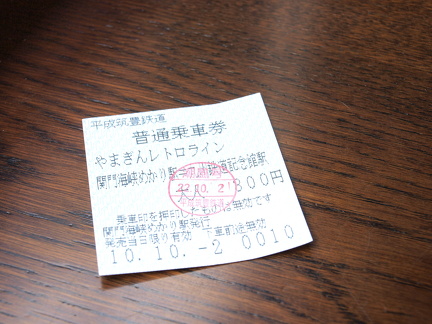 平成筑豊鉄道
普通乗車券
やまぎんレトロライン
関門海峡めかり駅
鉄道記念館駅
大人
300円
22.10.2
乗車印を押印したものは無効です
関門海峡めかり駅発行
発売当日限り有効 下車前途無効
10.10.-2 0010